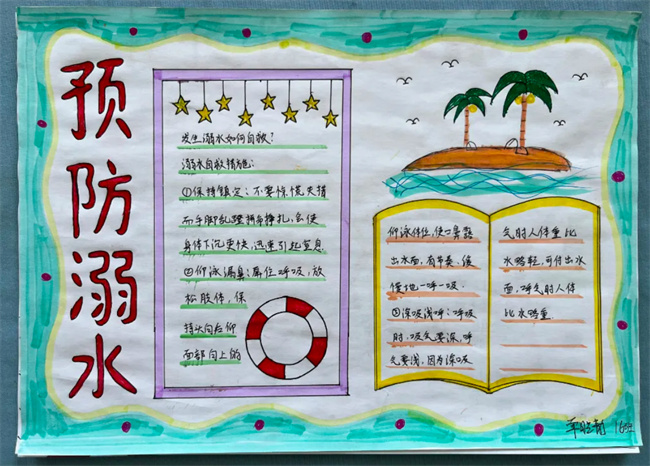 预防溺水
发生溺水如何自救?
溺水自救措施:
①保持镇定:不要惊慌失措
而手脚乱蹬拼命挣扎,会使
身体下沉更快,迅速引起窒息
②仰泳漏鼻:屏住呼吸,放
松肢体,保
持头向后仰
面部向上的
仰泳体位,使口鼻露
出水面,有节奏、缓
慢地一呼一吸.
③深吸浅呼:呼吸
时,吸气要深,呼
气要浅,因为深吸
气时人体重比
水略轻,可浮出水
面,呼气时人体
比水略重